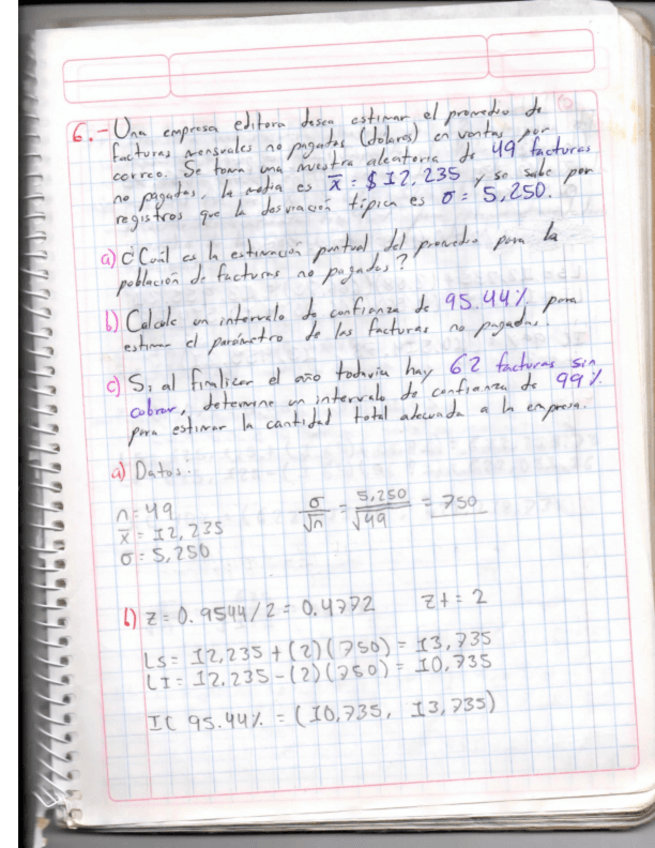 6.- Una empresa editora desea estimar el promedio de
facturas mensuales no pagadas (dolares) en ventas por
correo. Se toma una muestra aleatoria de 49 facturas
no pagadas, la media es x̅ = $ 12,235 y se sabe por
registros que la desviación típica es σ = 5,250.
a) ¿Cuál es la estimación puntual del promedio para la
población de facturas no pagadas?
b) Calcule un intervalo de confianza de 95.44% para
estimar el parámetro de las facturas no pagadas.
c) Si al finalizar el año todavia hay 62 facturas sin
cobrar, determine un intervalo de confianza de 99%
para estimar la cantidad total adecuada a la empresa.
a) Datos:
n = 49
x̅ = 12,235
σ = 5,250
σ/√n = 5,250/√49 = 750
b) Z = 0.9544/2 = 0.4772 Zt = 2
Ls = 12,235 + (2)(750) = 13,735
LI = 12.235 - (2)(750) = 10,735
IC 95.44% = (10,735, 13,735)